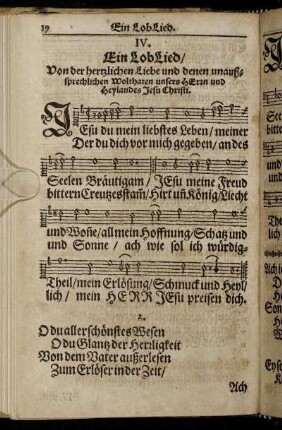 19 Ein LobLied.
IV.
Ein LobLied/
Von der hertzlichen Liebe und denen unauß-
sprechlichen Wolthaten unsers HErrn und
Heylandes Jesu Christi.
JEsu du mein liebstes Leben/ meiner
Der du dich vor mich gegeben/ an des
Seelen Bräutigam/ JEsu meine Freud
bittern Creutzes stam̃/ Hirt uñ König/ Liecht
und Woñe/ all mein Hoffnung/ Schatz und
und Sonne/ ach wie sol ich würdig-
Theil/ mein Erlösung/ Schmuck und Heyl/
lich/ mein HERR JEsu preisen dich.
2.
O du allerschönstes Wesen
O du Glantz der Herꝛligkeit
Von dem Vater außerlesen
Zum Erlöser in der Zeit/
Ach